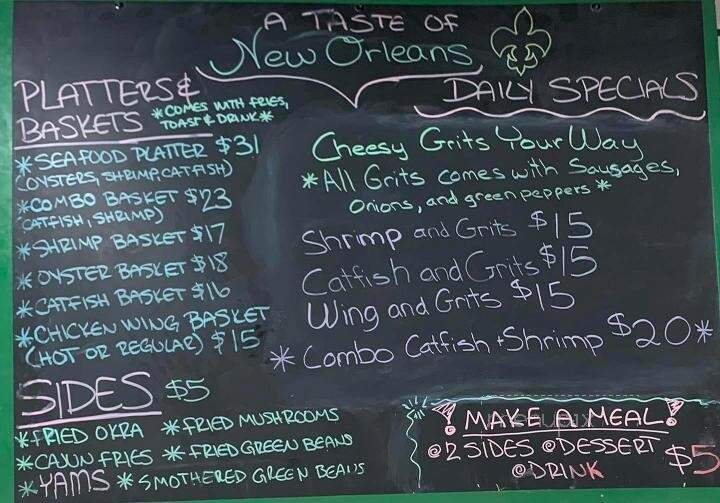 A TASTE OF
New Orleans
PLATTERS &
BASKETS
*COMES WITH FRIES,
TOAST & DRINK*
*SEAFOOD PLATTER $31
(OYSTERS, SHRIMP, CATFISH)
*COMBO BASKET $23
CATFISH, SHRIMP)
*SHRIMP BASKET $17
*OYSTER BASKET $18
*CATFISH BASKET $16
*CHICKEN WING BASKET
(HOT OR REGULAR) $15
SIDES $5
*FRIED OKRA *FRIED MUSHROOMS
*CAJUN FRIES *FRIED GREEN BEANS
*YAMS *SMOTHERED GREEN BEANS
DAILY SPECIALS
Cheesy Grits Your Way
*All Grits comes with Sausages,
Onions, and green peppers*
Shrimp and Grits $15
Catfish and Grits $15
Wing and Grits $15
*Combo Catfish + Shrimp $20*
! MAKE A MEAL!
@2 SIDES @DESSERT $5
@DRINK